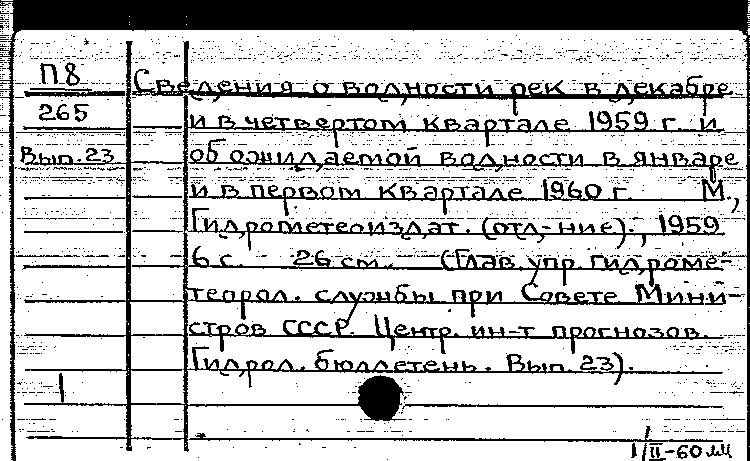 П8
265
Вып. 23
Сведения о водности рек в декабре
и в четвертом квартале 1959 г. и
об ожидаемой водности в январе
и в первом квартале 1960 г. М.,
Гидрометеоиздат. (отд-ние)., 1959
6 с. 26 см. (Глав. упр. гидроме-
теорол. службы при Совете Мини-
стров СССР. Центр. ин-т прогнозов.
Гидрол. бюллетень. Вып. 23).
1
1/II-60